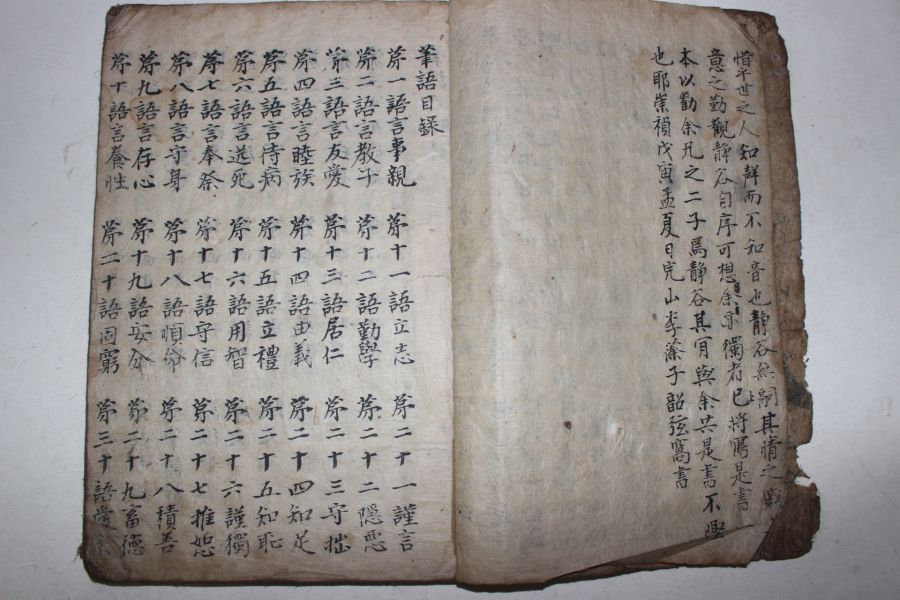 惜乎世之人知聲而不知音也靜谷無嗣其情之慼
意之勤觀靜谷自序可想余亦獨者已將寫是書一
本以勸余兄之二子焉靜谷其肎與余共是書不慳
也耶崇禎戊寅孟夏日完山李滌子韶弦窩書
筆語目錄
苐一語言事親
苐二語言教子
苐三語言友愛
苐四語言睦族
苐五語言侍病
苐六語言送死
苐七語言奉祭
苐八語言守身
苐九語言存心
苐十語言養性
苐十一語立志
苐十二語勤學
苐十三語居仁
苐十四語由義
苐十五語立禮
苐十六語用智
苐十七語守信
苐十八語順命
苐十九語安分
苐二十語固窮
苐二十一謹言
苐二十二隱惡
苐二十三守拙
苐二十四知足
苐二十五知恥
苐二十六謹獨
苐二十七推恕
苐二十八積善
苐二十九畜德
苐三十語